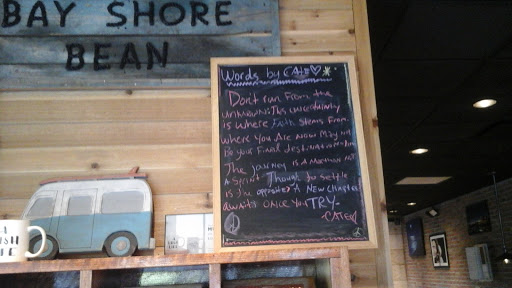 BAY SHORE
BEAN
Words by CATE
"Don't run from the
unknown. Its uncertainty
is where Faith stems from.
where you Are now May not
be your Final destination.
The journey is A Marathon not
A Sprint. Though to settle
is the opposite A New Chapter
awaits once you TRY-
-CATE